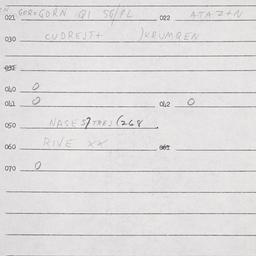 021 GORXGORN QI 5G/PL 022 ATAZ+N
030 CUDREJT+ )KRUMREN
032
040 0
041 0 042 0
050 NASE 5) TARJ (268
060 RIVE XX 061
070 0